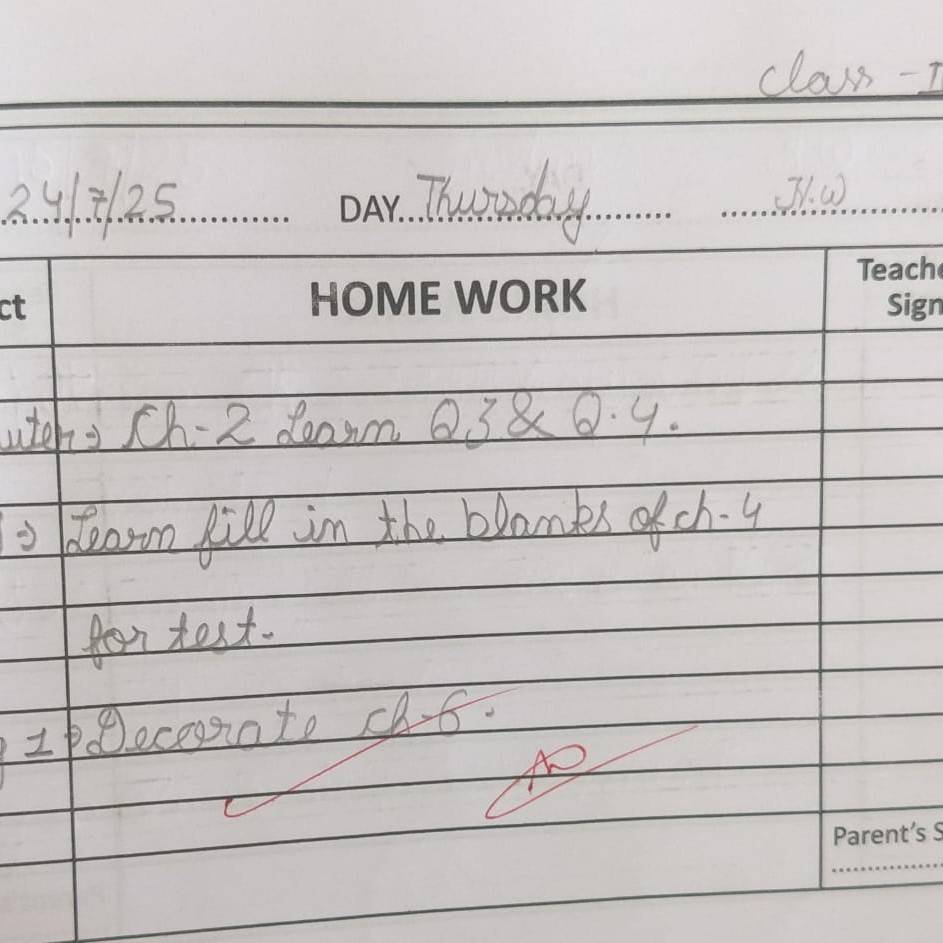 Class - I
24/7/25 DAY Thursday H.W
ct HOME WORK Teache
Sign
uter⇒ Ch-2 Learn Q3 & Q.4.
⇒ Learn fill in the blanks of ch-4
for test.
1⇒ Decorate ch-6.
Parent's S